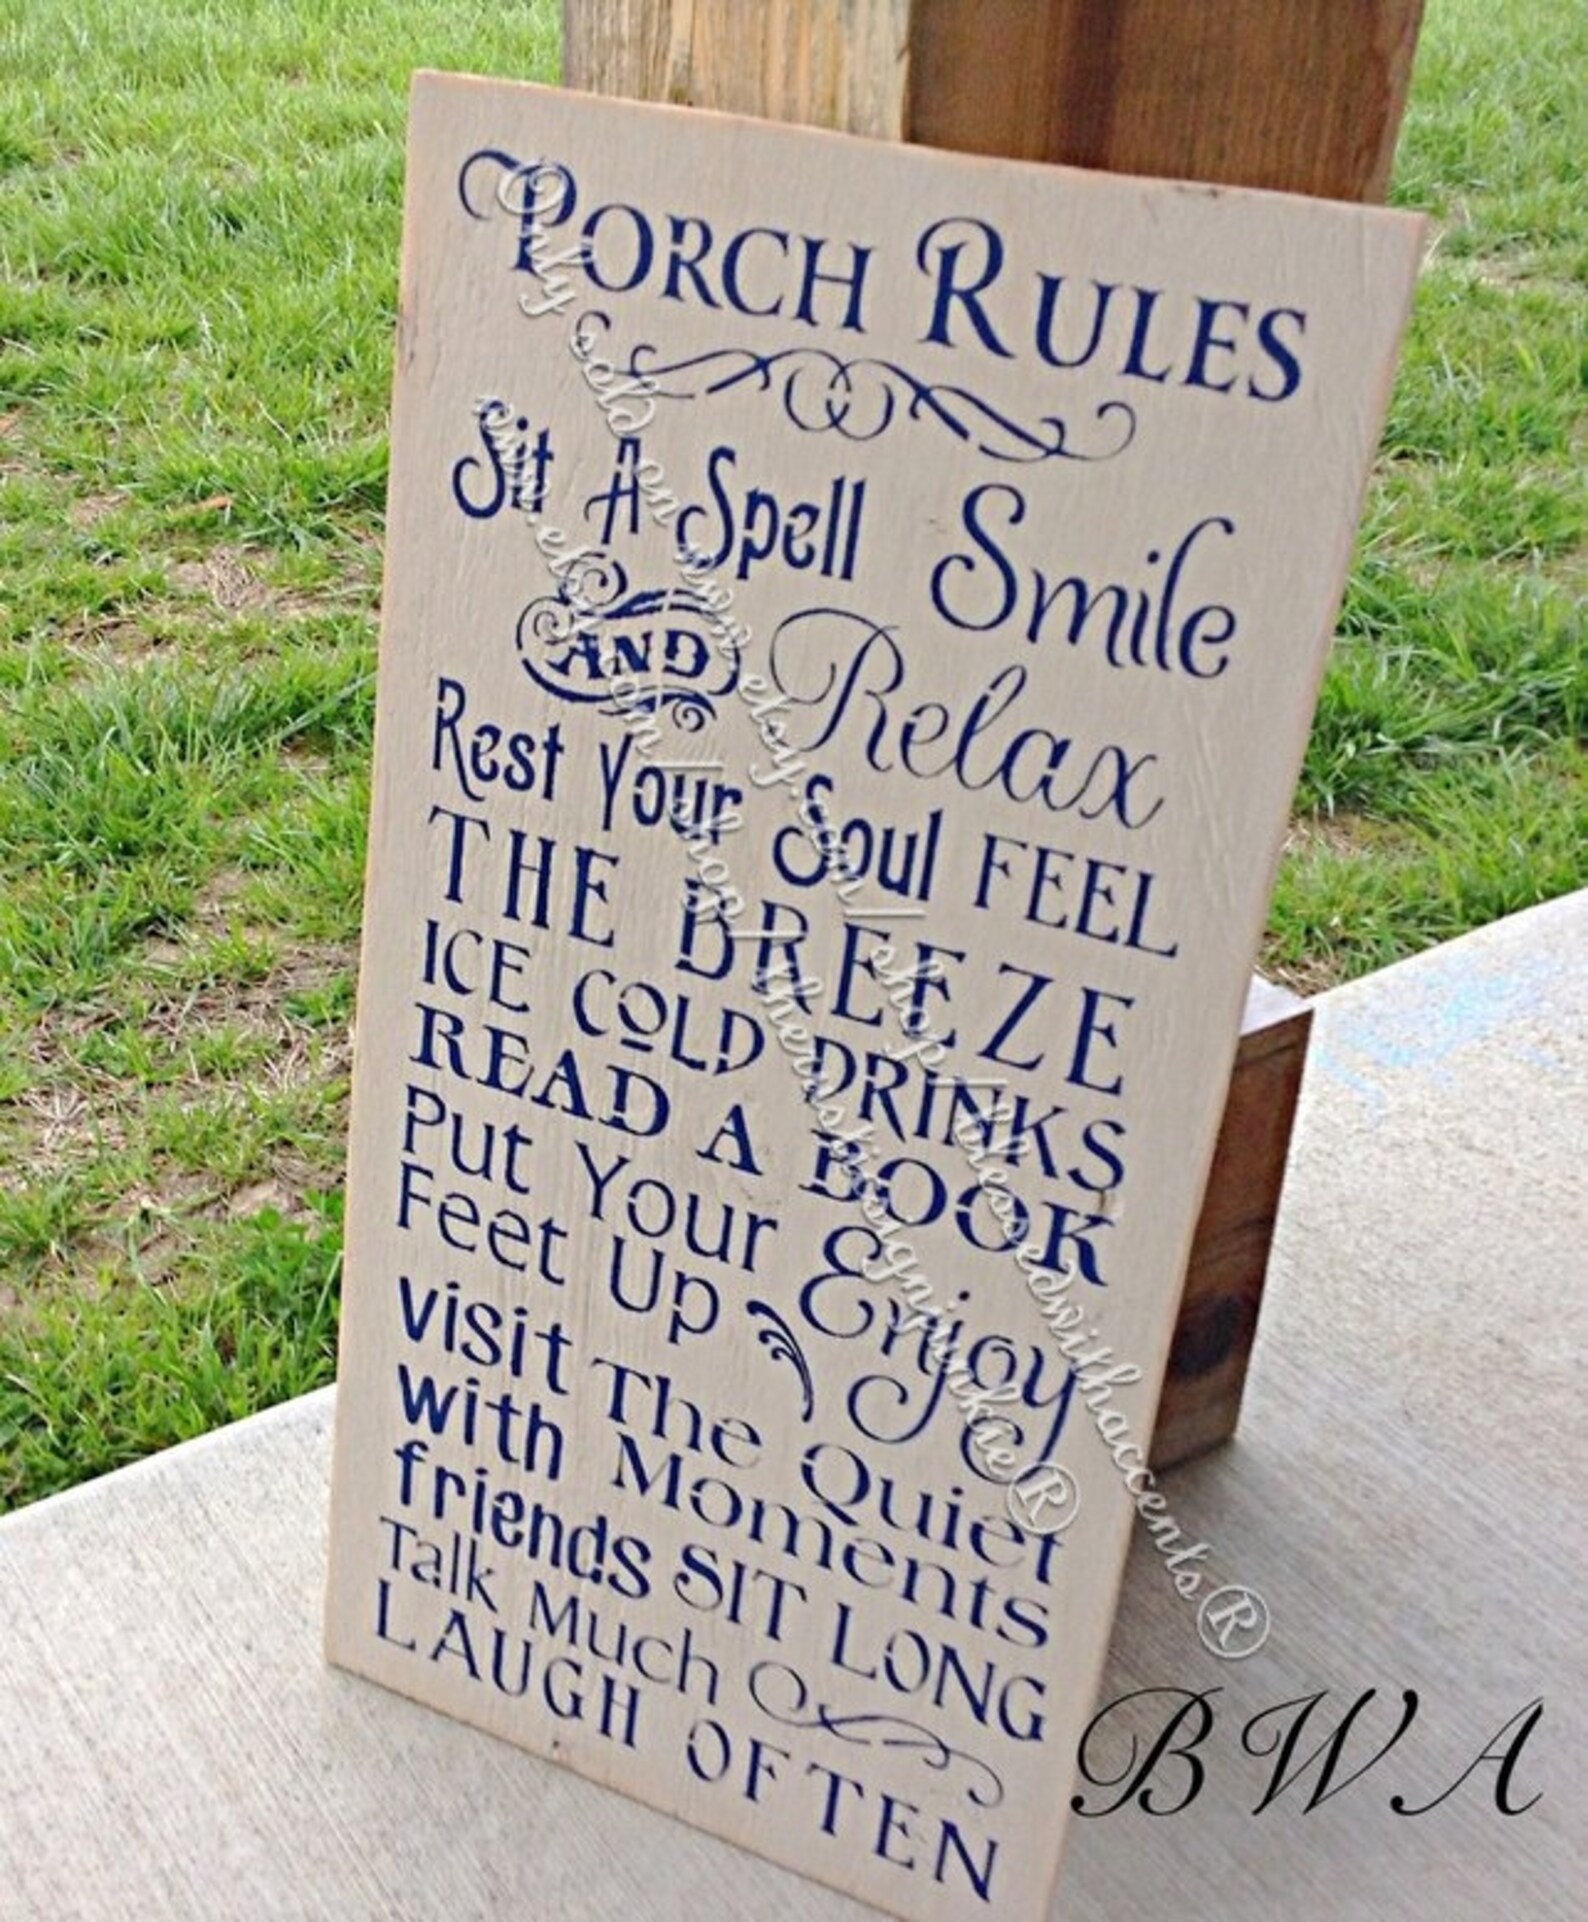 PORCH RULES
Sit A Spell Smile
AND Relax
Rest Your Soul FEEL
THE BREEZE
ICE COLD DRINKS
READ A BOOK
Put Your Enjoy
Feet Up
visit The Quiet
with Moments
friends SIT LONG
Talk Much
LAUGH OFTEN
Only sold on www.etsy.com/shop/blessedwithaccents®
www.etsy.com/shop/thedesignjunkie®
BWA